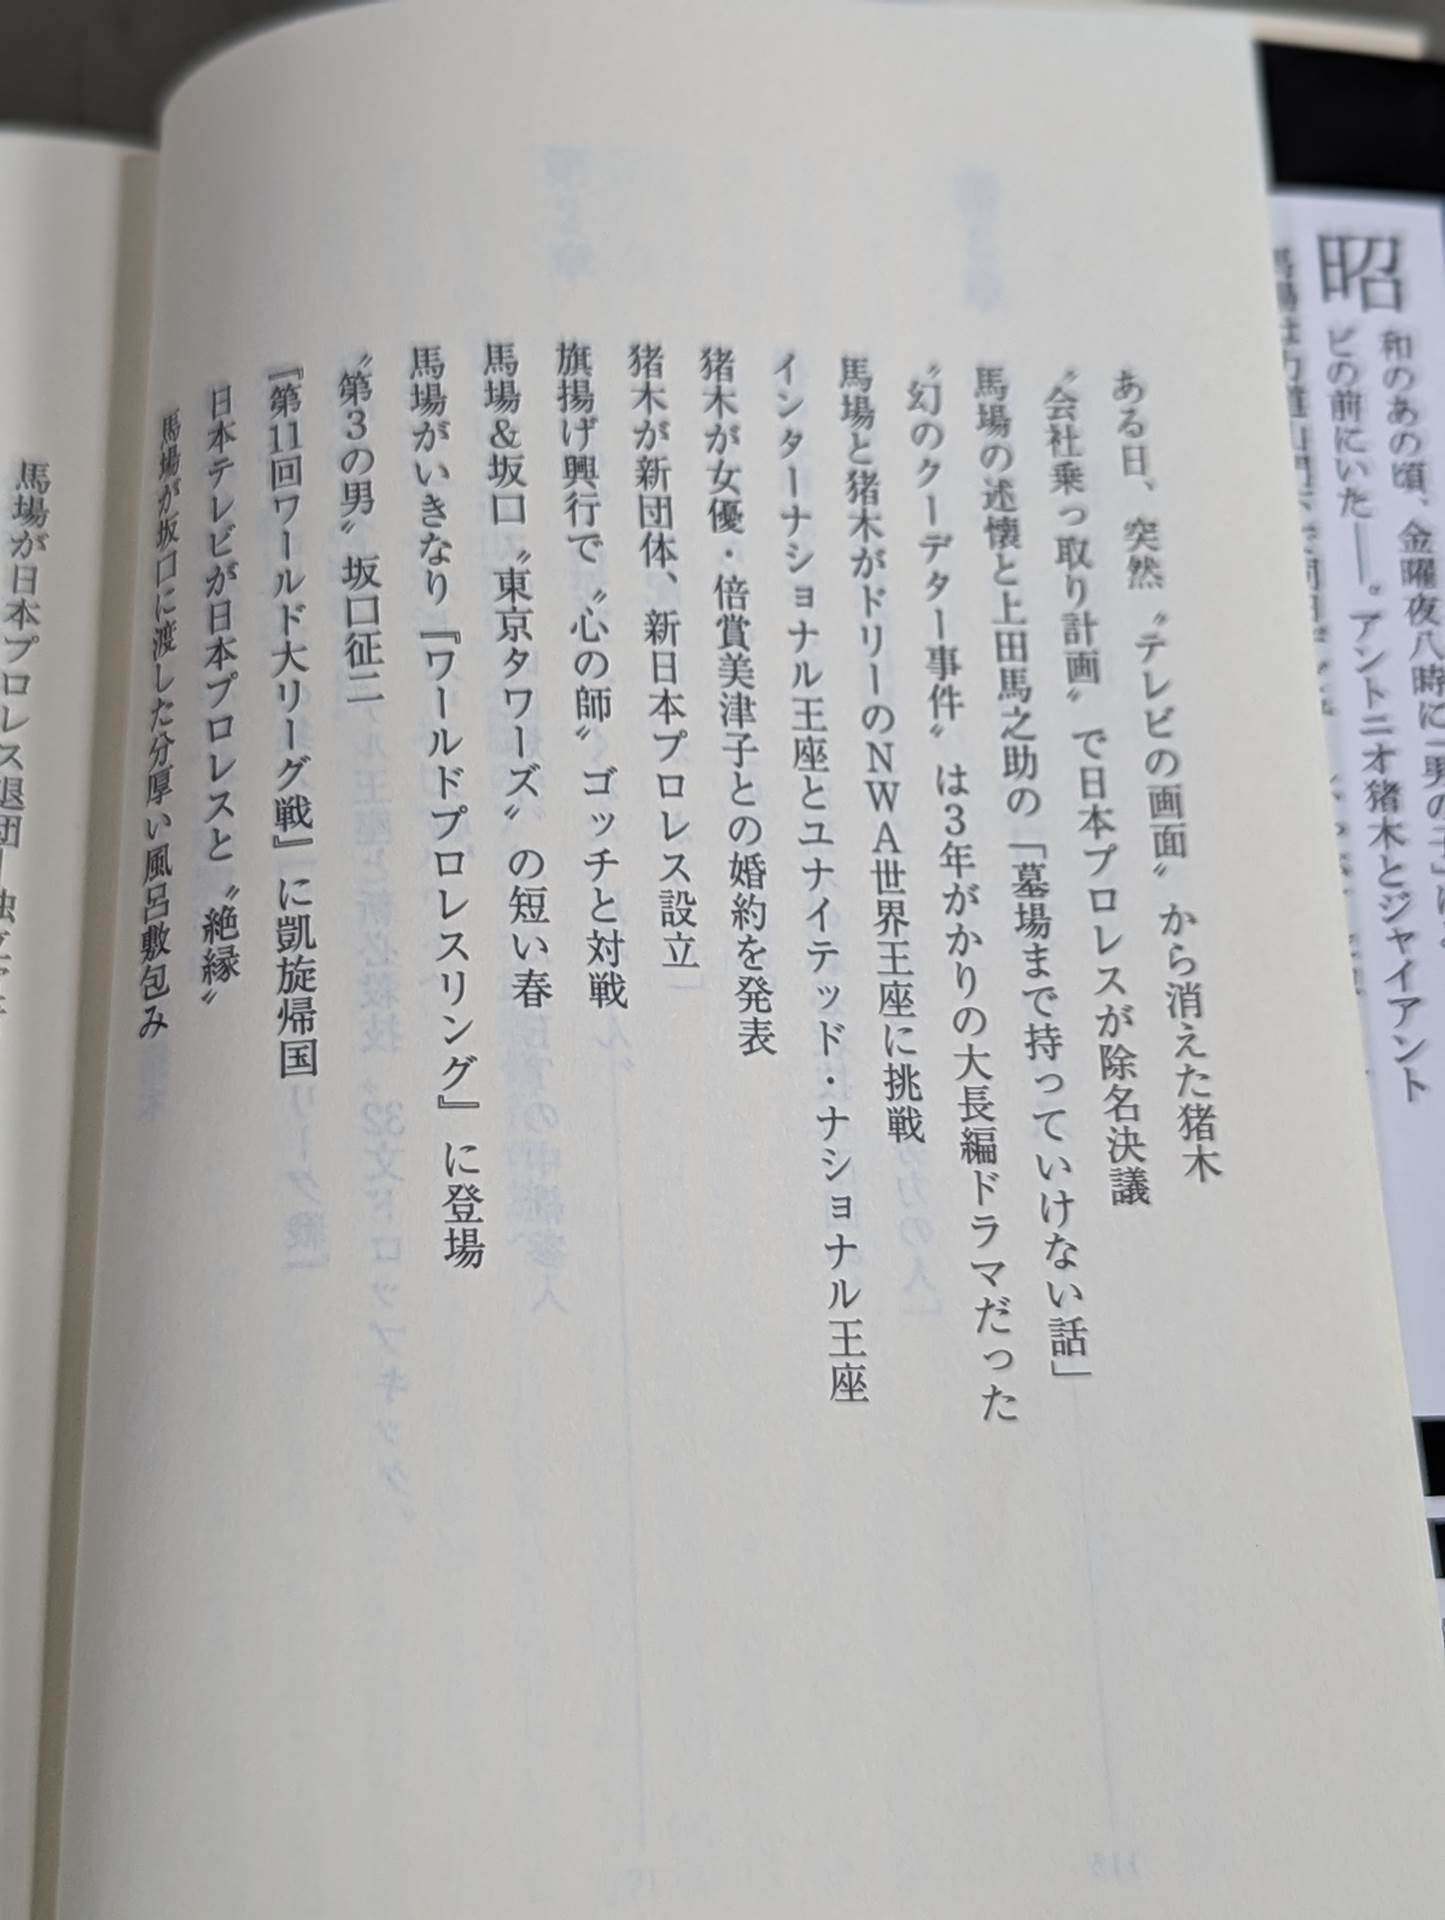 昭和のあの頃、金曜夜八時に「男の子」は
ビの前にいた――。アントニオ猪木とジャイアント
ある日、突然〝テレビの画面〟から消えた猪木
〝会社乗っ取り計画〟で日本プロレスが除名決議
馬場の述懐と上田馬之助の「墓場まで持っていけない話」
〝幻のクーデター事件〟は3年がかりの大長編ドラマだった
馬場と猪木がドリーのNWA世界王座に挑戦
インターナショナル王座とユナイテッド・ナショナル王座
猪木が女優・倍賞美津子との婚約を発表
猪木が新団体、新日本プロレス設立
旗揚げ興行で〝心の師〟ゴッチと対戦
馬場&坂口〝東京タワーズ〟の短い春
馬場がいきなり『ワールドプロレスリング』に登場
〝第3の男〟坂口征二
『第11回ワールド大リーグ戦』に凱旋帰国
日本テレビが日本プロレスと〝絶縁〟
馬場が坂口に渡した分厚い風呂敷包み
馬場が日本プロレス退団―独立